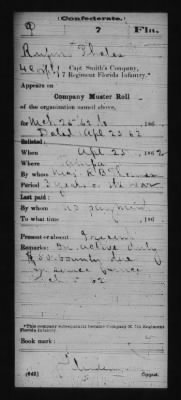 Confederate.
P 7 Fla.
4 Corpl, Capt Smith's Company,
7 Regiment Florida Infantry.*
Appears on
Company Muster Roll
of the organization named above,
for Mch 26 62 to , 186 .
Dated Apl 25 62
Enlisted:
When Apl 25 , 1862
Where Tampa
By whom Maj. R B
Period 3 years or the war
Last paid:
By whom no payment
To what time , 186 .
Present or absent Present
Remarks: In active duty
$50 bounty due
*This company subsequently became Company K, 7th Regiment
Florida Infantry.
Book mark:
(642) Copyist.